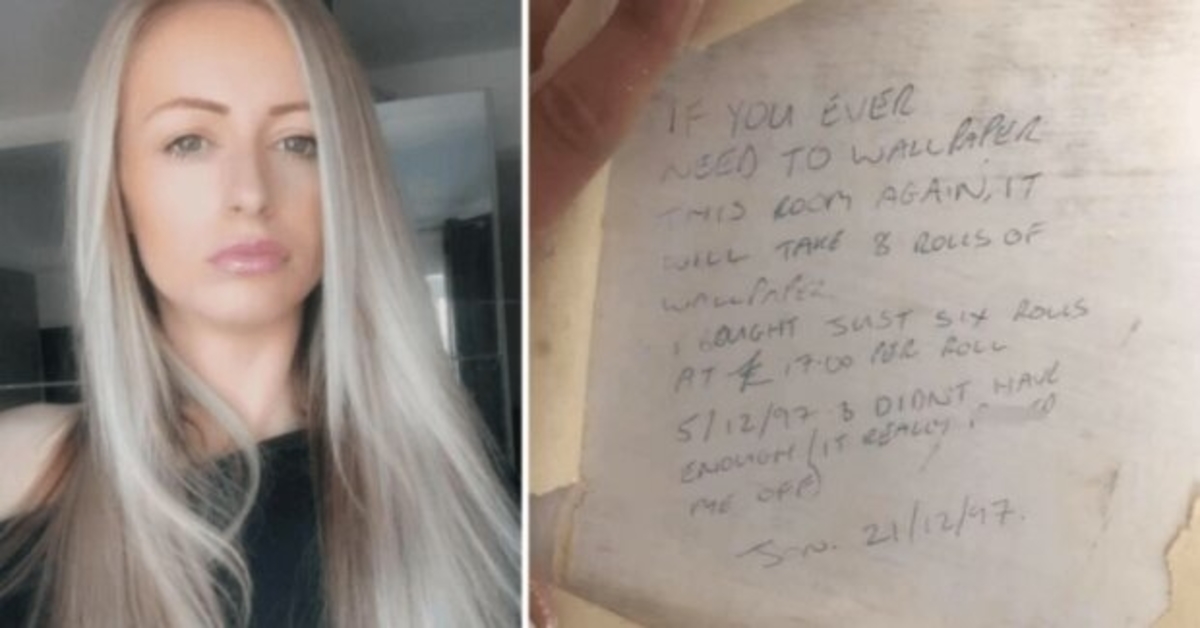 IF YOU EVER
NEED TO WALLPAPER
THIS ROOM AGAIN, IT
WILL TAKE 8 ROLLS OF
WALLPAPER
I BOUGHT JUST SIX ROLLS
AT £17.00 PER ROLL
5/12/97 & DIDNT HAVE
ENOUGH (IT REALLY
ME OFF)
21/12/97.